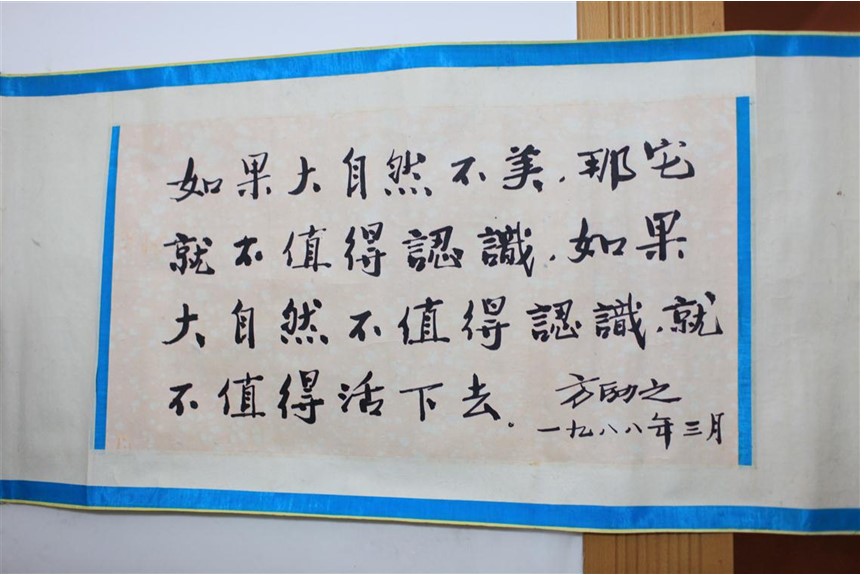 如果大自然不美，那它
就不值得認識，如果
大自然不值得認識，就
不值得活下去。
方励之
一九八八年三月